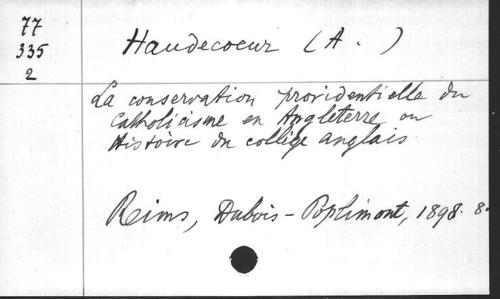 77
335
2
Haudecoeur (A.)
La conservation providentielle du
Catholicisme en Angleterre ou
Histoire du collège anglais
Reims, Dubois-Poplimont, 1898. 8.